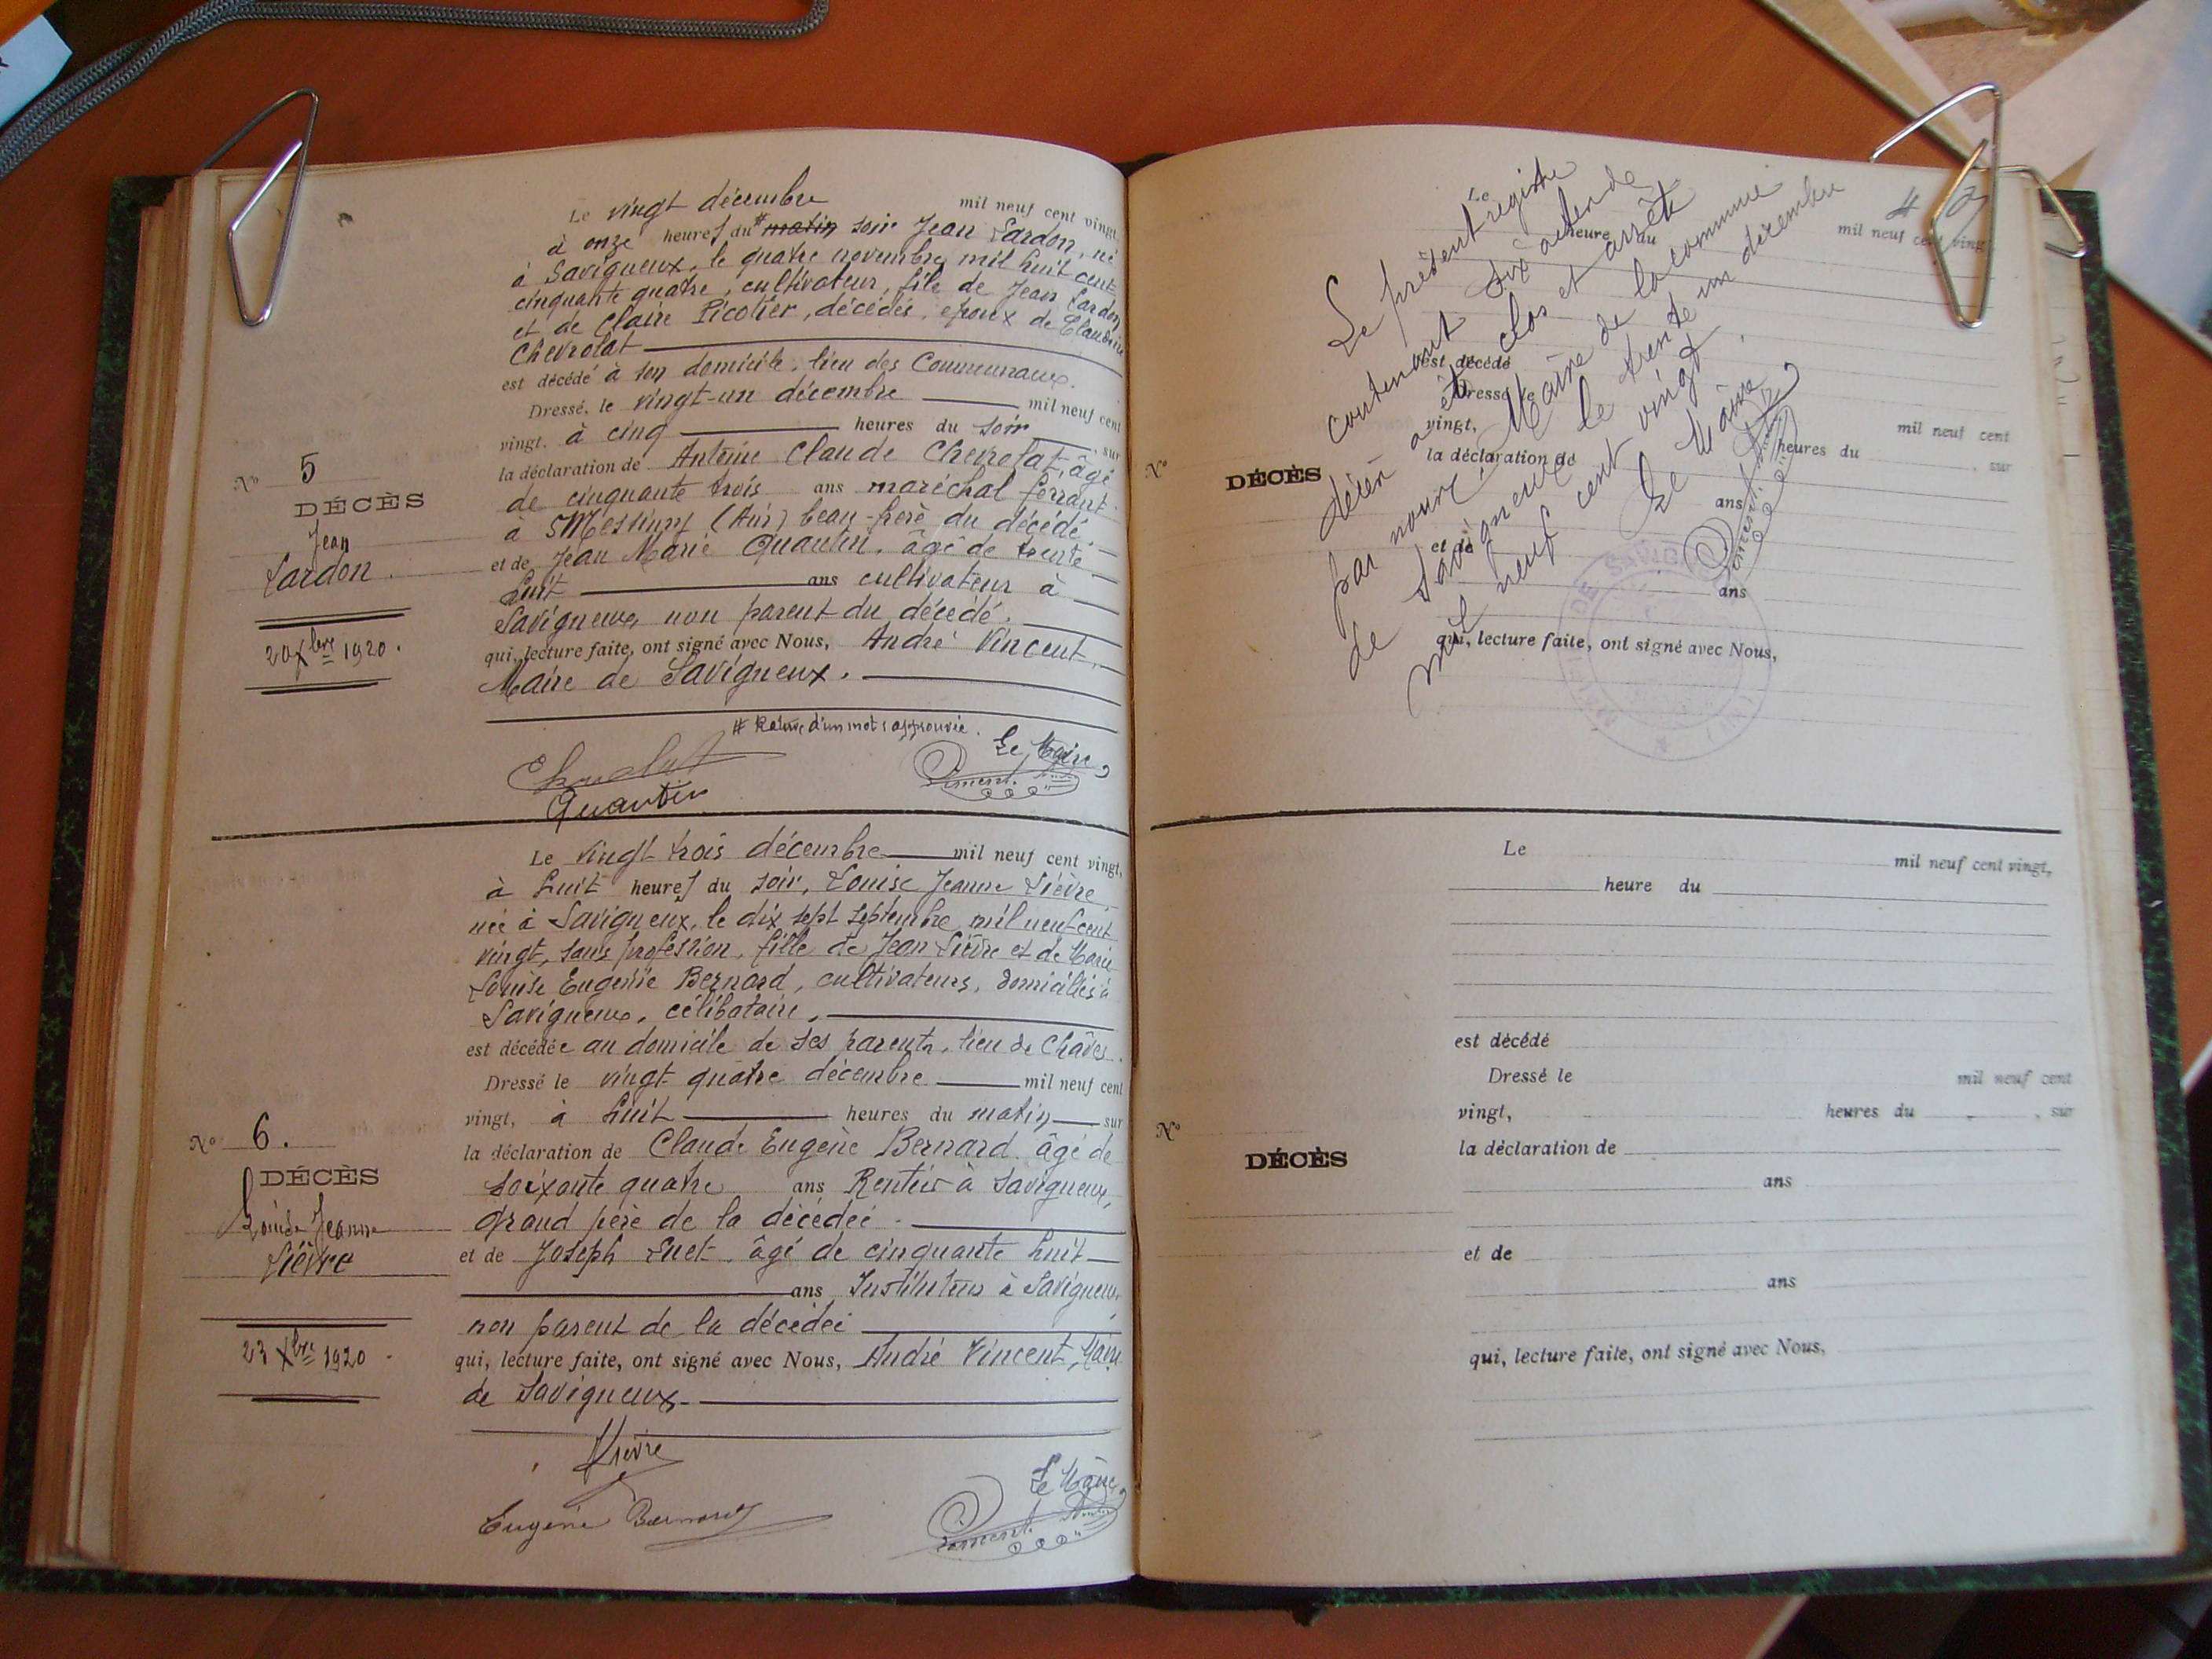 Le vingt décembre mil neuf cent vingt,
à onze heures du # matin soir Jean Lardon, né
à Savigneux, le quatre novembre mil huit cent
cinquante quatre, cultivateur, fils de Jean Lardon
et de Claire Picotier, décédés, époux de Claudine
Chevrolat
est décédé à son domicile, lieu des Communaux.
Dressé, le vingt-un décembre mil neuf cent
vingt, à cinq heures du soir, sur
la déclaration de Antoine Claude Chevrolat, âgé
de cinquante trois ans maréchal ferrant
à Messimy (Ain) beau-frère du décédé.
et de Jean Marie Quantin, âgé de trente
huit ans cultivateur à
Savigneux non parent du décédé.
qui, lecture faite, ont signé avec Nous, André Vincent,
Maire de Savigneux.
# Rature d'un mot approuvée.
Le Maire
Quantin
Vincent
No 5
DÉCÈS
Jean
Lardon.
20 Xbre 1920.
Le vingt trois décembre mil neuf cent vingt,
à huit heures du soir, Louise Jeanne Lièvre,
née à Savigneux, le dix sept septembre mil neuf cent
vingt, sans profession, fille de Jean Lièvre et de Marie
Louise Eugénie Bernard, cultivateurs, domiciliés à
Savigneux, célibataire,
est décédée au domicile de ses parents, lieu de Chânes.
Dressé le vingt quatre décembre mil neuf cent
vingt, à huit heures du matin sur
la déclaration de Claude Eugène Bernard âgé de
soixante quatre ans Rentier à Savigneux,
grand père de la décédée.
et de Joseph Suet âgé de cinquante huit
ans Instituteur à Savigneux
non parent de la décédée
qui, lecture faite, ont signé avec Nous, André Vincent, Maire
de Savigneux.
Lièvre
Le Maire
Eugène Bernard
Vincent
No 6.
DÉCÈS
Louise Jeanne
Lièvre
23 Xbre 1920
Le présent registre
contenant six actes de
décès a été clos et arrêté
par nous, Maire de la commune
de Savigneux le trente un décembre
mil neuf cent vingt.
Le Maire
Vincent
Le mil neuf cent vingt
heure du
est décédé
Dressé le mil neuf cent
vingt, heures du , sur
la déclaration de
ans
et de
ans
qui, lecture faite, ont signé avec Nous,
No
DÉCÈS
Le mil neuf cent vingt,
heure du
est décédé
Dressé le mil neuf cent
vingt, heures du , sur
la déclaration de
ans
et de
ans
qui, lecture faite, ont signé avec Nous,
No
DÉCÈS